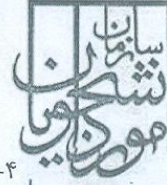 سازمان
امور دانشجویان
۴-